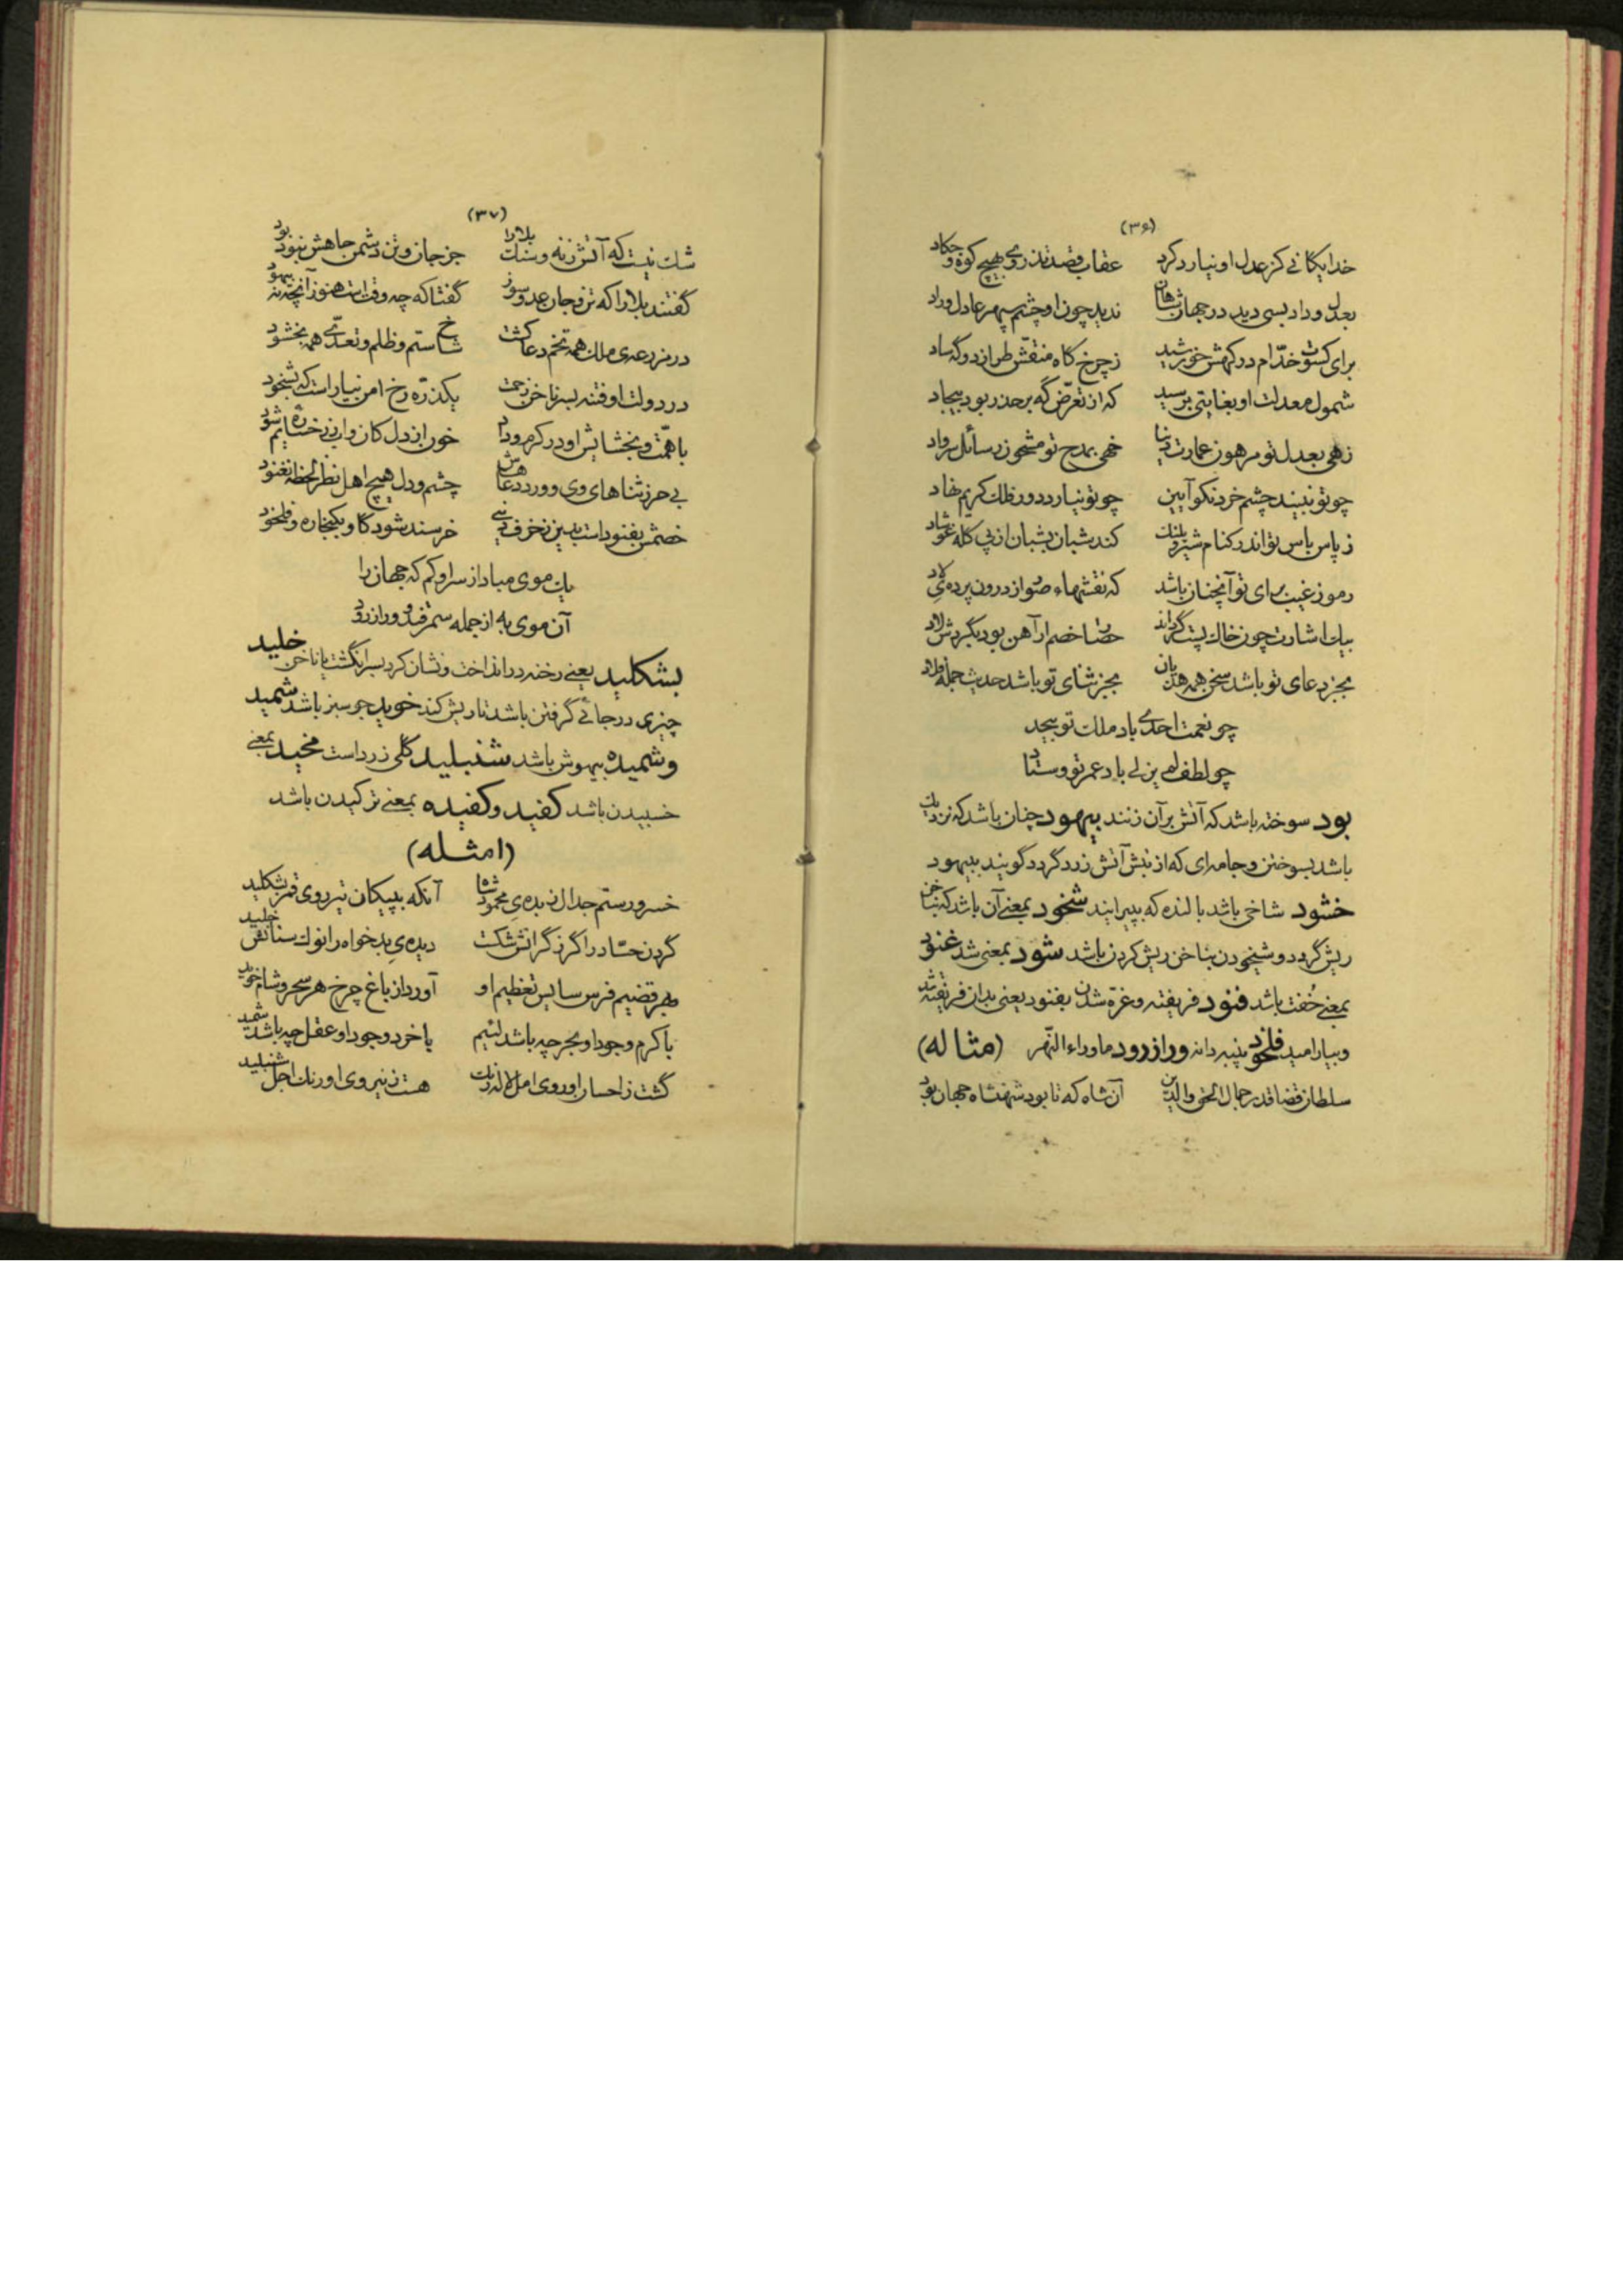 (۳۶)
خدایگانی کز عدل او نیارد کرد عقاب قصد تذروی بهیچ کوه و چکاد
بعدل و داد بسی دید در جهان شاهان ندید چون او چشم سپهر عادل وراد
برای کسوت خدّام درگهش خورشید ز چرخ گاه منقّش طراز دوگه ساد
شمول معدلت او بغایتی برسید که از تعرّض که بر حذر بود بیجاد
زهی بعدل تو مرهون عمارت دنیا خهی بمدح تو مشحون رسائل سرواد
چو تو نبیند چشم خرد نکو آیین چو تو نیارد دور فلک کریم نهاد
ز پاس باس تو اندر کنام شیر و پلنک کند شبان بشبان از پی کله غوشاد
رموز غیب برای تو آنچنان باشد که نقشهاء صور از درون پرده‌ی لاد
بیک اشارت چون خاک پست گرداند حصا خصم ار آهن بود بگردش لاد
بجز دعای تو باشد سخن همه هذیان بجز ثنای تو باشد حدیث جمله فلاد
چو نعمت احدی باد ملک تو بیحد
چو لطف لم یزلی باد عمر تو وستاد
بود سوخته باشد که آتش برآن زنند بیهود چنان باشد که نزدیک
باشد بسوختن و جامه‌ای که از تبش آتش زرد گردد گویند بیهود
خشود شاخی باشد بالنده که بپیرایند شخود بمعنی آن باشد که بناخن
ریش گردد و شیخودن بناخن ریش کردن باشد شود بمعنی شد غنود
بمعنی خُفت باشد فنود فریفته و غرّه شدن بفنود یعنی بدان فریفته شد
و بیارامید فلخود پنبه دانه ورازرود ماوراء النّهر (مثاله)
سلطان قضا قدر جمال الحق والدین آن شاه که تا بود شهنشاه جهان بود
(۳۷)
شک نیست که آتش زنه و سنک بلارا جز جان و تن دشمن جاهش نبود بود
گفتند بلا را که تن و جان عدو سوز گفتا که چه وقت است هنوز آنچه نه بیهود
در مزرعه‌ی ملک همه تخم دعا کشت شاخ ستم و ظلم و تعدّی همه بخشود
در دولت او فتنه بسر ناخن زحمت یکذرّه رخ امن نیارست که بشخود
با همّت و بخشایش او در کرم و داد خور از دل کان وا بی رخشنده ایم شود
بی حرز ثناهای وی و ورد دعاهاش چشم و دل هیچ اهل نظر لحظه نغنود
خصمش بفنوداست بدین زخرف دنیی خرسند شود گاو بکنجاره و فلخود
یک موی مباد از سر او کم که جهان را
آن موی به از جمله سمرقند و ورازرود
بشکلید یعنی رخنه در انداخت و نشان کرد بسر انگشت یا ناخن خلید
چیزی در جائی گرفتن باشد تا ریش کند خوید جو سبز باشد شمید
و شمیده بیهوش باشد شنبلید گلی زرد است مخید بمعنی
خسبیدن باشد کفید و کفیده بمعنی ترکیدن باشد
(امثله)
خسرو رستم جدال زبده‌ی محمود شاه آنکه بپیکان تیر روی قمر بشکلید
گردن حسّاد را گرز گرانش شکست دیده‌ی بدخواه را نوک سنانش خلید
بهر قضیم فرس سایس تعظیم او آورد از باغ چرخ هر سحر و شام خوید
با کرم وجود او بحر چه باشد لئیم با خرد وجود او عقل چه باشد شمید
گشت ز احسان او روی امل لاله رنک هست ز نیروی او رنک اجل شنبلید